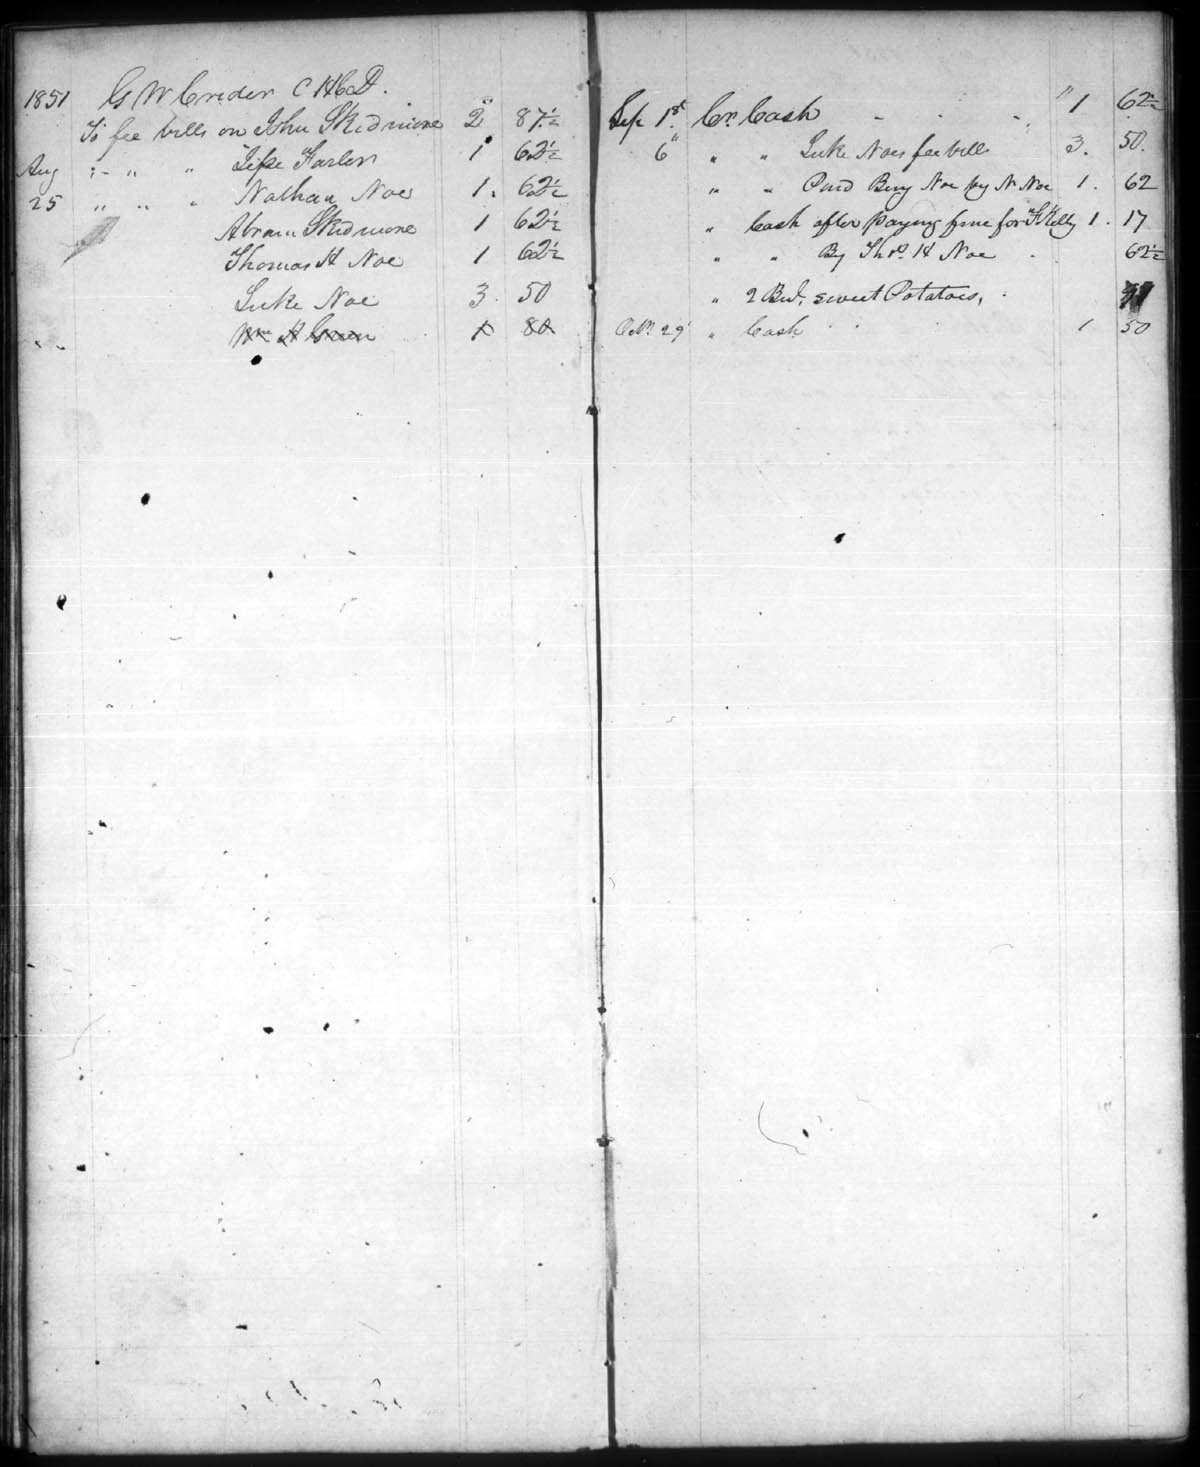 1851 G W Crider C H C D.
To fee bills on John Skidmore 2" 87½
Aug " " " Jesse Farler 1 62½
25 " " " Nathan Noe 1. 62½
Abram Skidmore 1 62½
Thomas H Noe 1 62½
Luke Noe 3. 50
Wm H Green 1 80
Sep 1st Cr. Cash " 1 62½
6" " " Luke Noes fee bill 3. 50.
" " Paid Beny Noe by N Noe 1. 62
" Cash after paying fine for Kelly 1. 17
" " By Thos. H Noe 62½
" 2 Bus. sweet Potatoes.
Oct. 29 " Cash 1 50